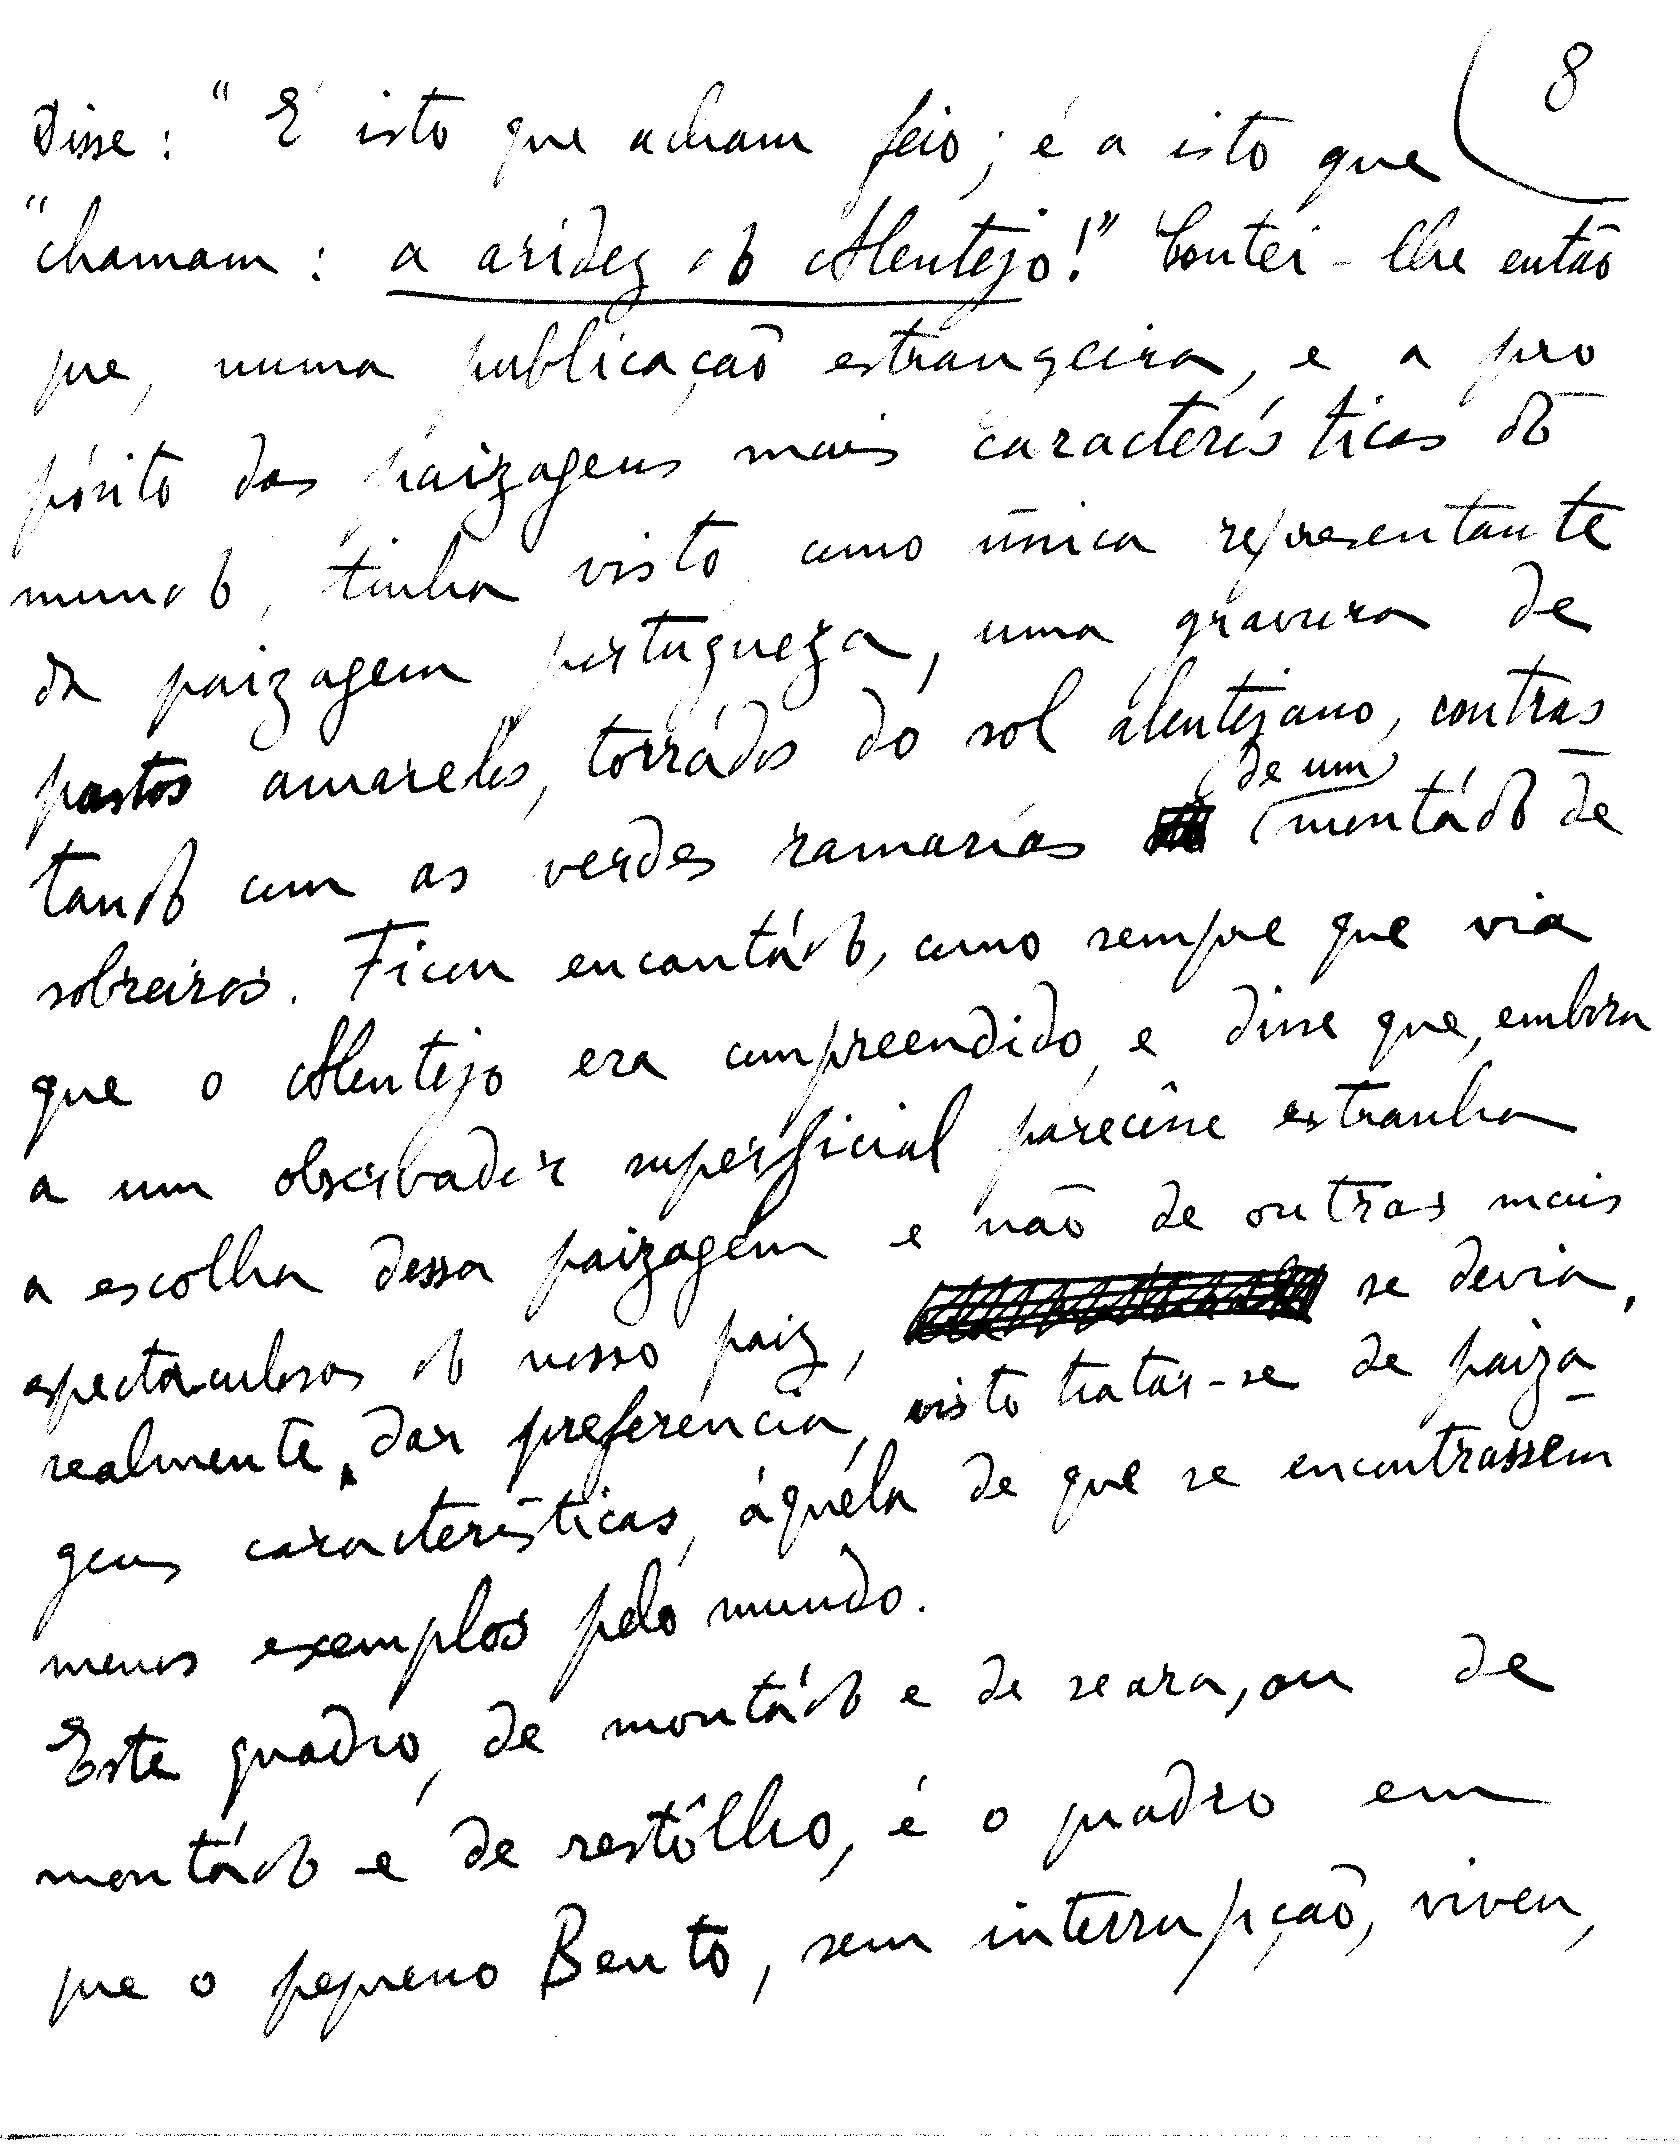 8
Disse: "É isto que acham feio; é a isto que
"chamam: a aridez do Alentejo!" Contei-lhe então
que, numa publicação estrangeira, e a pro
pósito das paizagens mais características do
mundo, tinha visto, como única representante
da paizagem portugueza, uma gravura de
pastos amarelos, torrádos do sol alentejano, contras
de um
tando com as verdes ramarias montádo de
sobreiros. Ficou encantádo, como sempre que via
que o Alentejo era compreendido, e disse que, embora
a um observador superficial parecêsse estranha
a escolha dessa paizagem e não de outras mais
espectaculosas do nosso paiz, se devia,
realmente, dar preferencia, visto tratar-se de paiza
gens características, áquéla de que se encontrassem
menos exemplos pelo mundo.
Este quadro, de montádo e de seara, ou de
montádo e de restôlho, é o quadro em
que o pequeno Bento, sem interrupção, viveu,